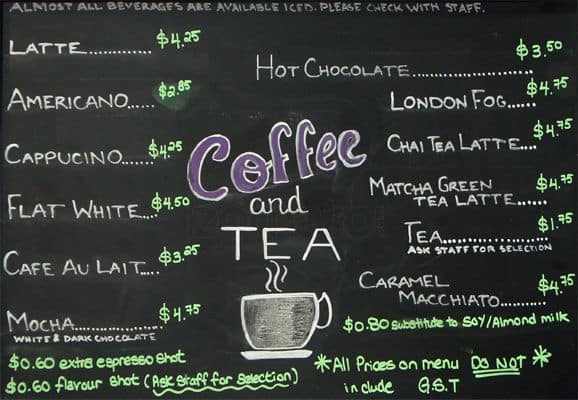 ALMOST ALL BEVERAGES ARE AVAILABLE ICED. PLEASE CHECK WITH STAFF.
LATTE............ $4.25
AMERICANO...... $2.85
CAPPUCINO....... $4.25
FLAT WHITE... $4.50
CAFE AU LAIT..... $3.25
MOCHA............ $4.75
WHITE & DARK CHOCOLATE
$0.60 extra espresso shot
$0.60 flavour shot (Ask Staff for Selection)
Coffee
and
TEA
HOT CHOCOLATE........................ $3.50
LONDON FOG...... $4.75
CHAI TEA LATTE.... $4.75
MATCHA GREEN
TEA LATTE...... $4.75
TEA..................... $1.75
ASK STAFF FOR SELECTION
CARAMEL
MACCHIATO......... $4.75
$0.80 substitute to SOY/Almond milk
*All Prices on menu DO NOT *
include G.S.T